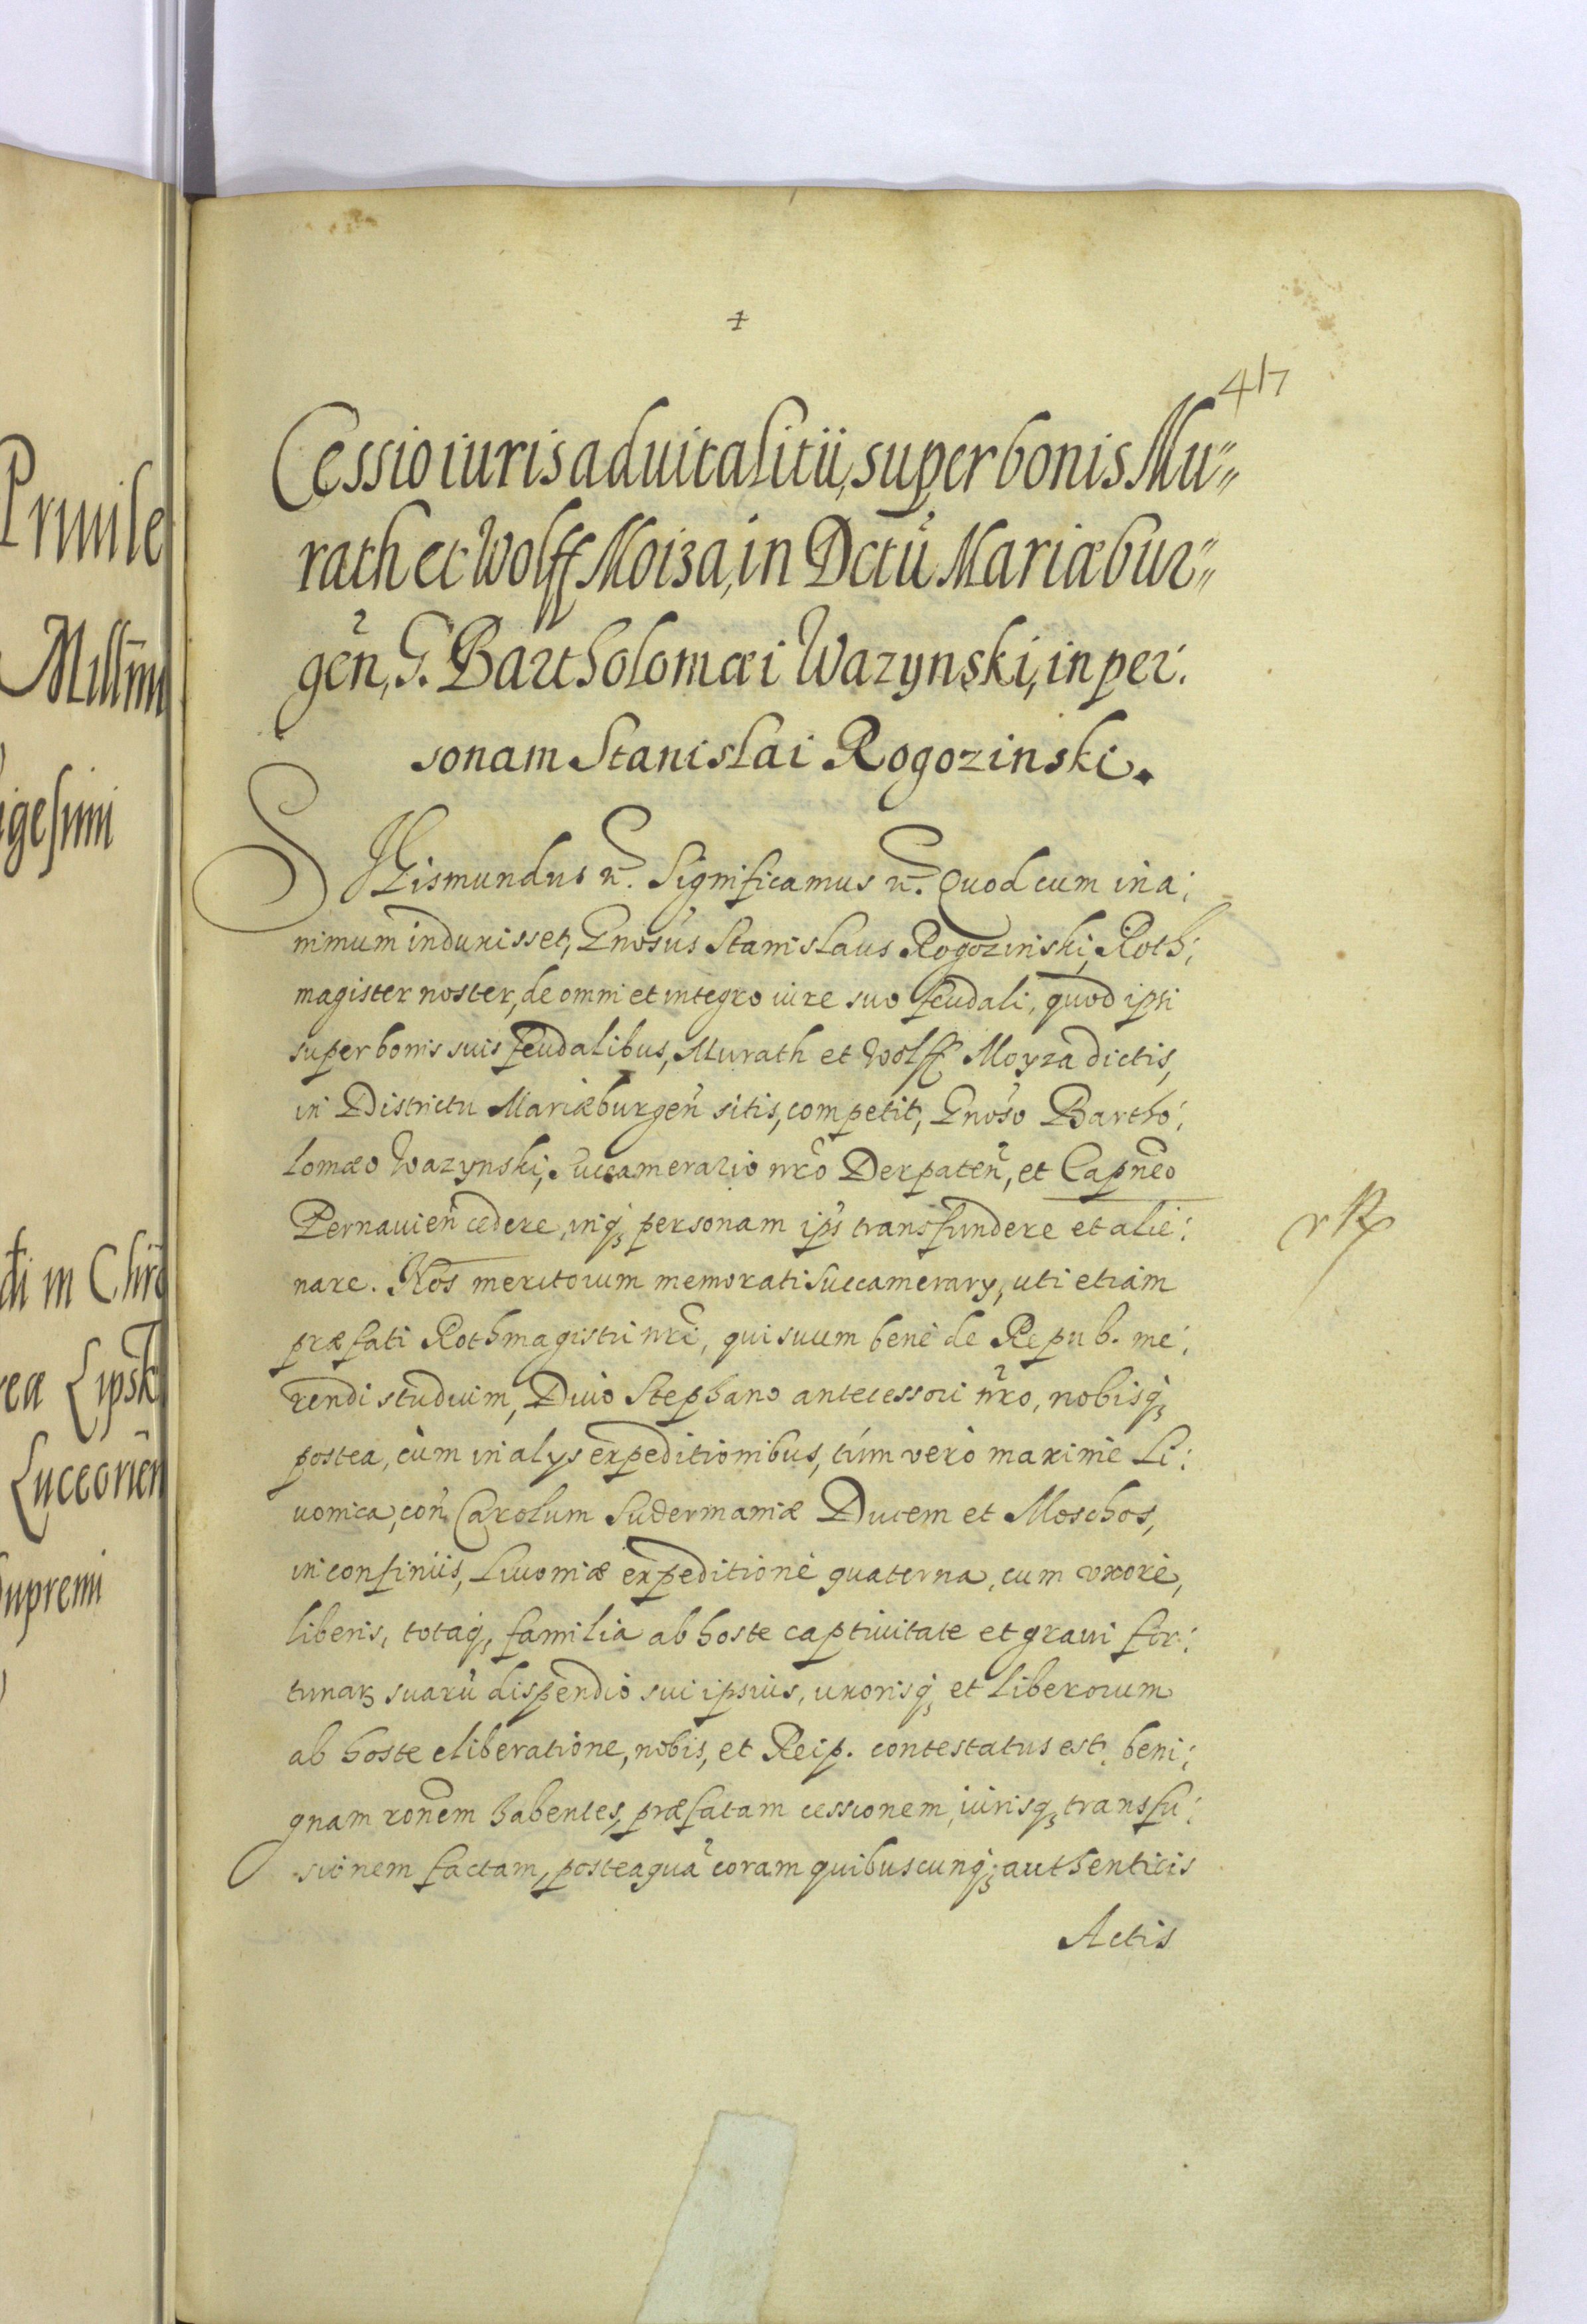 +
417
Cessio iuris aduitalitii, super bonis Mu⸗
rath et Wolff Moiza, in Dctū Mariæbur⸗
gen̄, G. Bartholomæi Wazynski, in per:
sonam Stanislai Rogozinski.
SIgismundus etc. Significamus etc. Quod cum in a:
nimum induxisset, Gnosūs Stanislaus Rogozinski, Roth:
magister noster, de omni et integro iure suo feudali, quod ipsi
super bonis suis feudalibus, Murath et Wolff Moyza dictis,
in Districtu Mariæburgen̄ sitis, competit, Gnōso Bartho:
lomæo Wazynski, Succamerario nrō Derpaten̄, et Capnēo
Pernauien̄ cedere, inq₃ personam ips̄ transfundere et alie:
nare. Nos meritorum memorati Succamerarÿ, uti etiam
præfati Rothmagistri nrī, qui suum bene de Repub. me:
rendi studium, Diuo Stephano antecessori nrō, nobisq₃
postea, cùm in alÿs expeditionibus, tùm verò maximè Li:
uonica, con̄ Carolum Sudermaniæ Ducem et Moschos,
in confinÿs, Liuoniæ expeditione quaterna, cum vxore,
liberis, totaq₃ familia ab hoste captiuitate et graui for:
tunaꝝ suarū dispendio sui ipsius, uxorisq₃ et liberorum
ab hoste eliberatione, nobis, et Reip. contestatus est, beni:
gnam ronēm habentes, præfatam cessionem, iurisq₃ transfu:
sionem factam, posteaquā coram quibuscunq₃ authenticis
Actis
Priuile
di in Chr
Lucorien
upremi